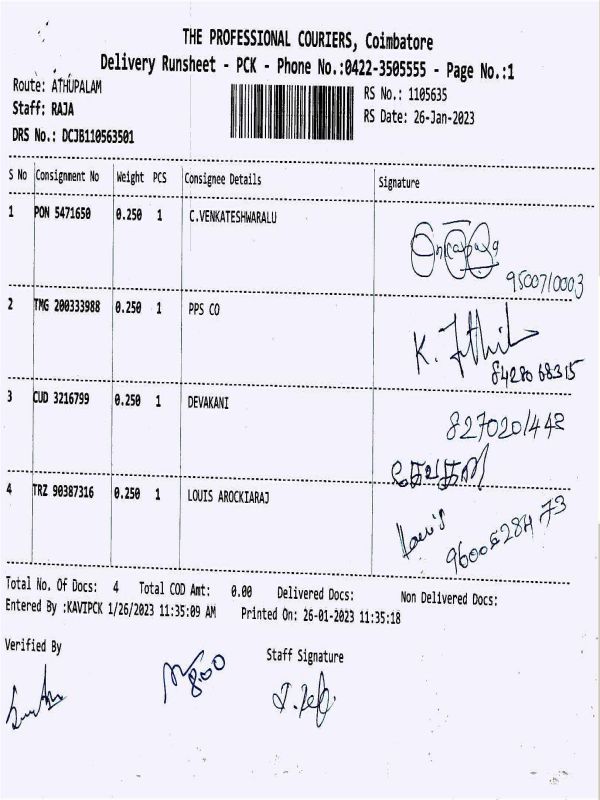 THE PROFESSIONAL COURIERS, Coimbatore
Delivery Runsheet - PCK - Phone No.:0422-3505555 - Page No.:1
Route: ATHUPALAM
Staff: RAJA
DRS No.: DCJB110563501
RS No.: 1105635
RS Date: 26-Jan-2023
S No Consignment No Weight PCS Consignee Details Signature
1 PON 5471650 0.250 1 C.VENKATESHWARALU
9500710003
2 TMG 200333988 0.250 1 PPS CO
K.
8428068315
3 CUD 3216799 0.250 1 DEVAKANI
8270201442
தேவகனி
4 TRZ 90387316 0.250 1 LOUIS AROCKIARAJ
Louis
9600528473
Total No. Of Docs: 4 Total COD Amt: 0.00 Delivered Docs: Non Delivered Docs:
Entered By :KAVIPCK 1/26/2023 11:35:09 AM Printed On: 26-01-2023 11:35:18
Verified By
Staff Signature
8:00